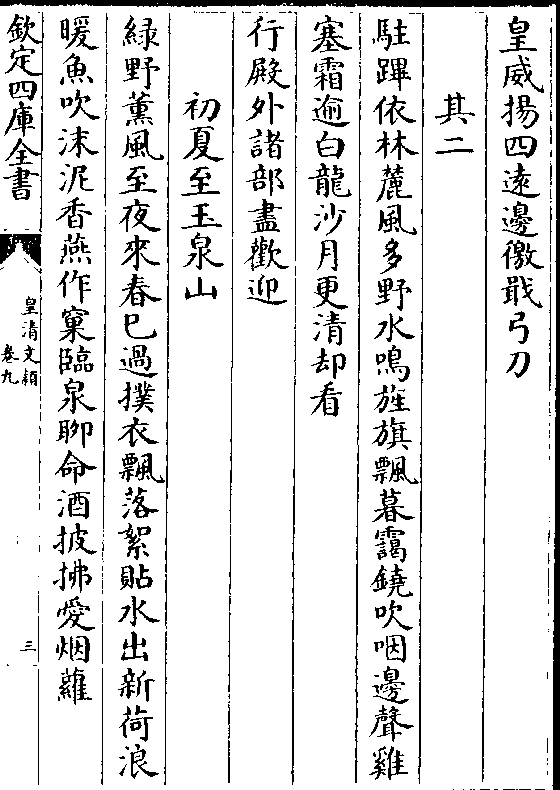 皇威揚四遠邊徼戢弓刀
其二
駐蹕依林麓風多野水鳴旌旗飄暮靄鐃吹咽邊聲雞
塞霜逾白龍沙月更清却看
行殿外諸部盡歡迎
初夏至玉泉山
緑野薰風至夜來春已過撲衣飄落絮貼水出新荷浪
暖魚吹沫泥香燕作窠臨泉聊命酒披拂愛烟蘿
欽定四庫全書
皇清文穎
卷九
三